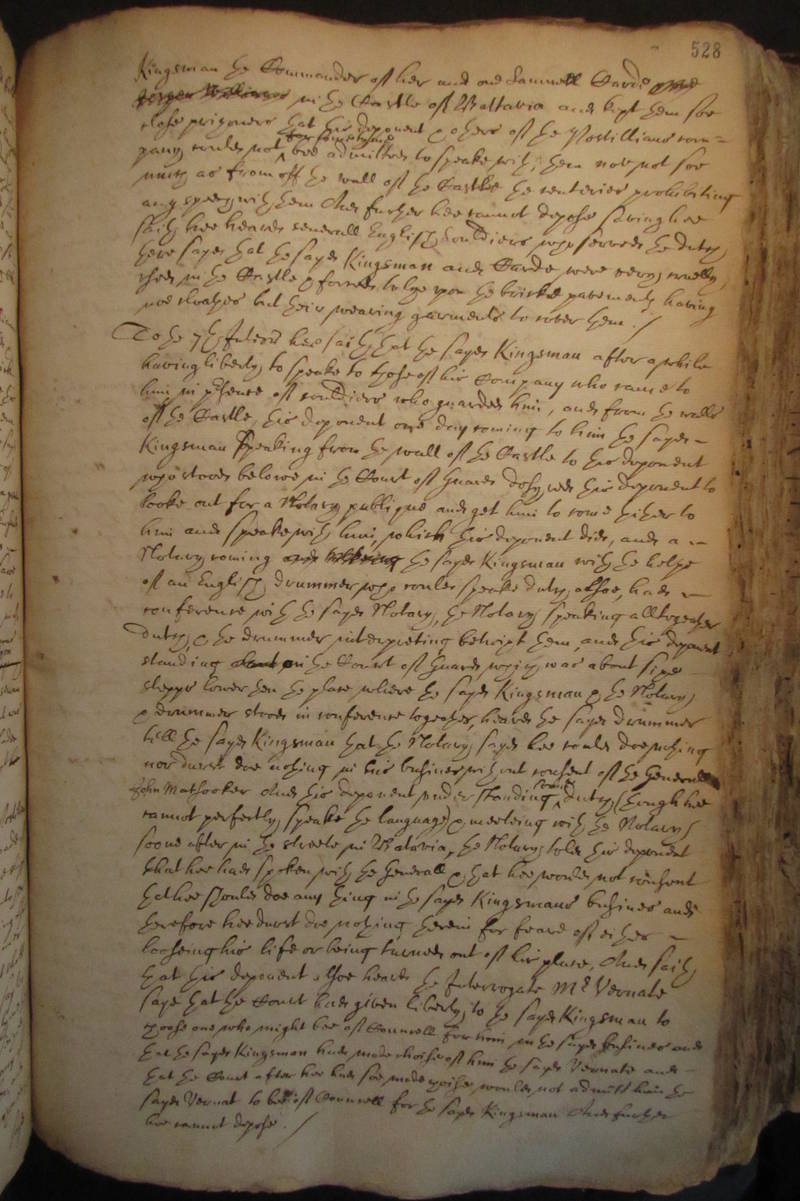 528
Kingsman the Commander of her and one Samuell Card
in the Castle of Battavia and kept them soe
close prisoners that this deponent & others of the Postillians com=
pany could not for some tyme bee admitted to speake with them noe not soe
much as from off the wall of the Castle the centeries prohibiting
any speech with them And further hee cannot depose saving hee
saith hee heard severall English souldiers who served the dutch
there saye that the sayd Kingsman and Carde were very cruelly
used in the Castle & forced to lye upon the bricke pavements having
noe cloathes but their wearing garments to cover them./
To the 7th Interr hee saith that the sayd Kingsman after a while
having liberty to speake to those of his Company who came to
him in presence of souldiers who guarded him, and from the walls
of the Castle, this deponent one day coming to him the sayd
Kingsman speaking from the wall of the Castle to this deponent
who stood belowe in the Court of Guard desyred this deponent to
looke out for a Notary publique and get him to come thither to
him and speake with him, which this deponent did, and a
Notary coming the sayd Kingsman with the helpe
of an English drummer who could speake dutch alsoe, had
conference with the sayd Notary, the Notary speaking alltogeather
dutch, & the drummer interpreting betwixt them, and this deponent
standing in the Court of Guard which was about sixe
stepps lower then the place where the sayd Kingsman & the Notary
& drummer stood in conference together, heard the sayd drummer
tell the sayd Kingsman that the Notary sayd hee could doe nothing
nor durst doe nothing in his busines without consent of the Generall
John Matsooker And this deponent understanding dutch (though hee
cannot perfectly speake the language) & meeteing with the Notary
soone after in the streete in Batavia, the Notary told this deponent
that hee had spoken with the Generall & that hee would not consent
that hee should doe any thing in the sayd Kingsmans busines and
therefore hee durst doe nothing therein for feare of either
looseing his life or being turned out of his place, And saith
that this deponent alsoe heard the Interrogate Mr Vernatt
saye that the Court had given liberty to the sayd Kingsman to
choose one who might bee of Councell for him in the sayd busines and
that the sayd Kingsman had made choise of him the sayd Vernatt and
that the Court after hee had soe made choise would not admitt him the
sayd Vernat to bee of Councell for the sayd Kingsman And further
hee cannot depose./